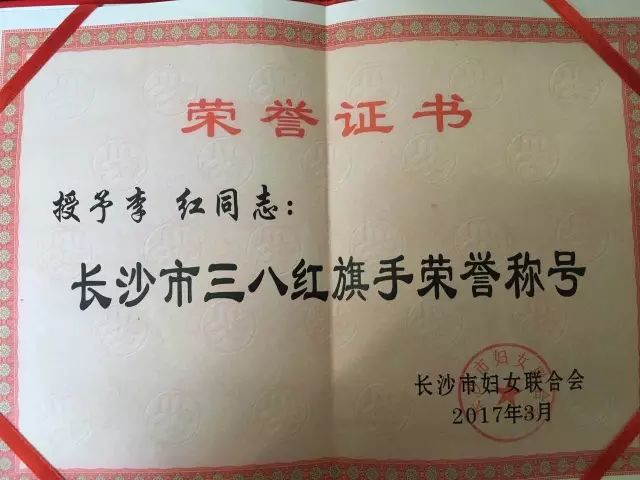 荣誉证书
授予李 红同志：
长沙市三八红旗手荣誉称号
长沙市妇女联合会
2017年3月